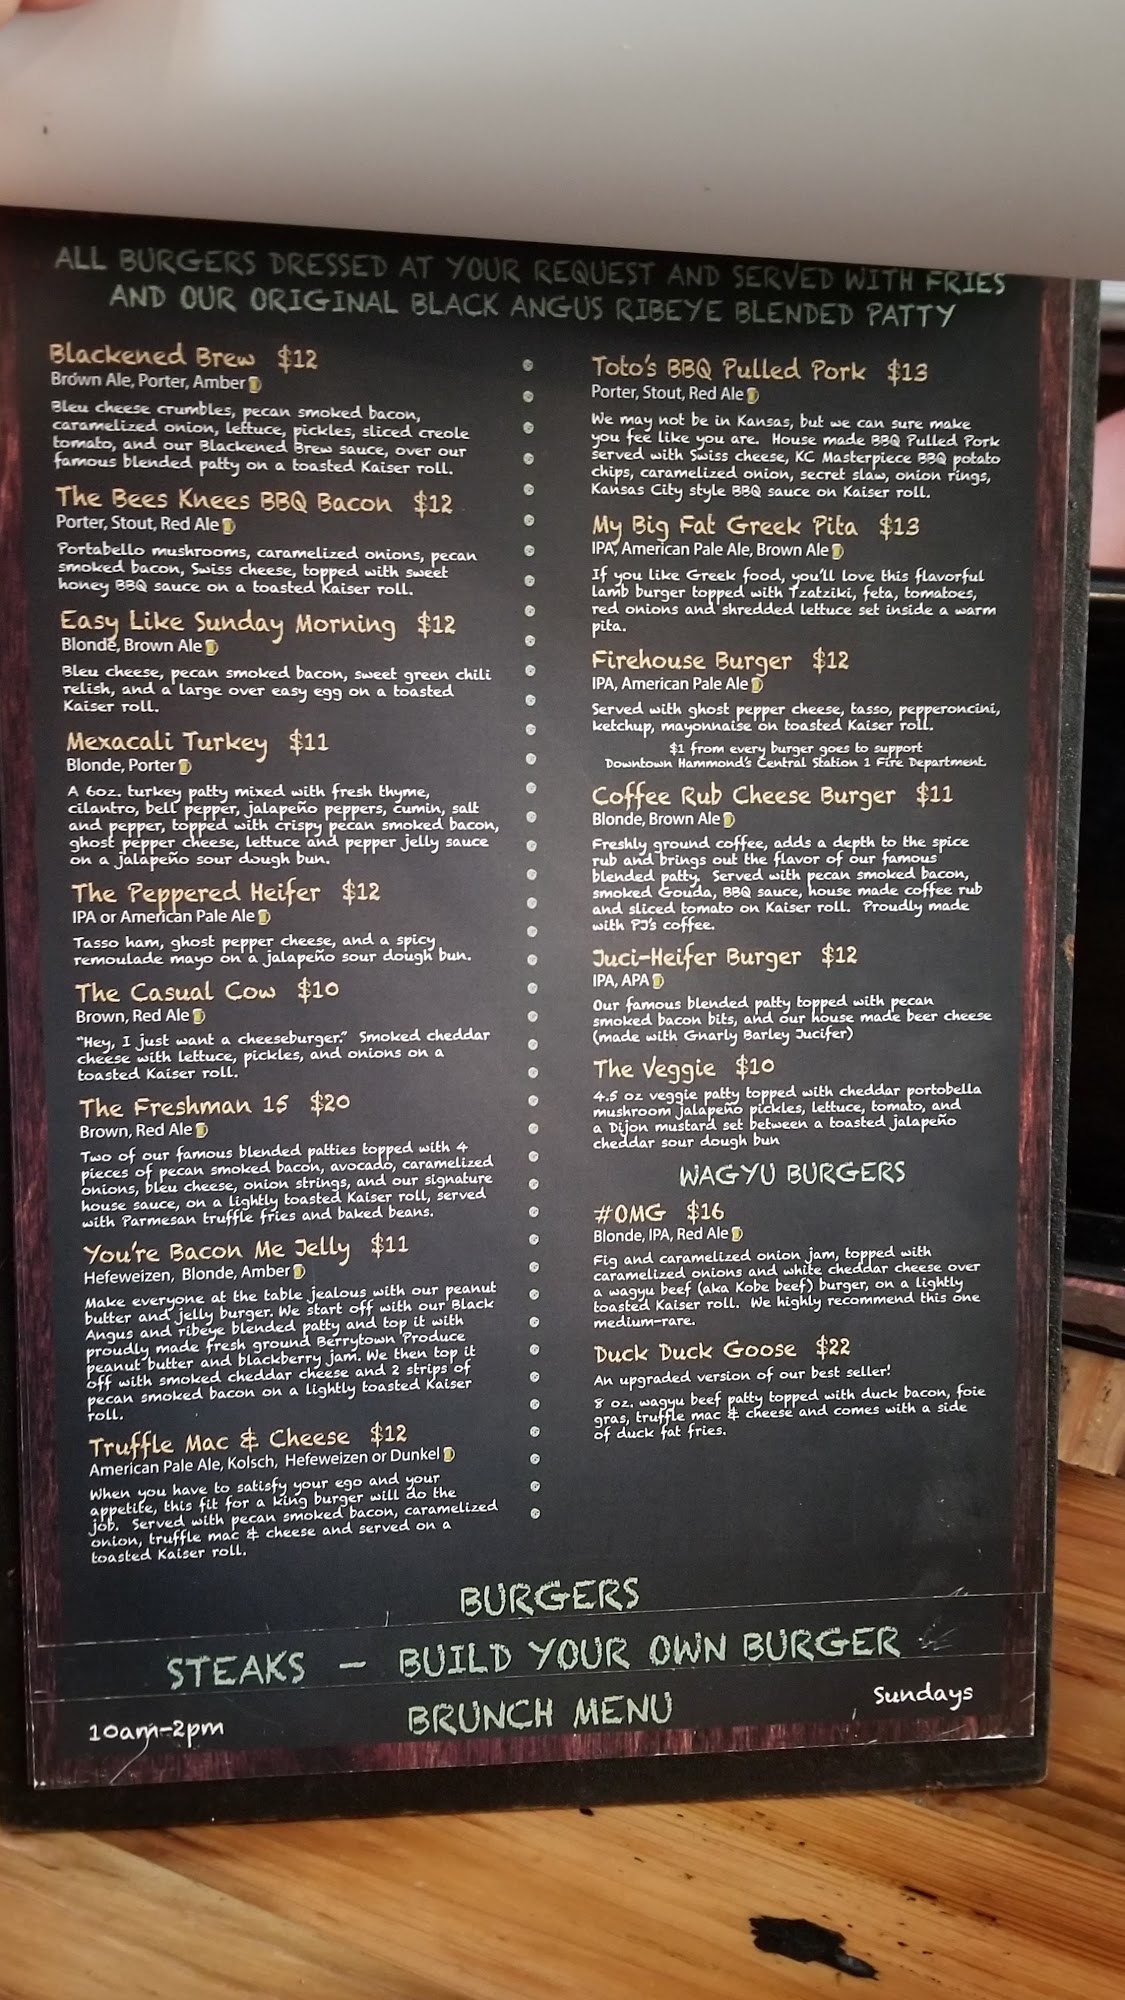 ALL BURGERS DRESSED AT YOUR REQUEST AND SERVED WITH FRIES
AND OUR ORIGINAL BLACK ANGUS RIBEYE BLENDED PATTY
Blackened Brew $12
Brown Ale, Porter, Amber
Bleu cheese crumbles, pecan smoked bacon,
caramelized onion, lettuce, pickles, sliced creole
tomato, and our Blackened Brew sauce, over our
famous blended patty on a toasted Kaiser roll.
The Bees Knees BBQ Bacon $12
Porter, Stout, Red Ale
Portabello mushrooms, caramelized onions, pecan
smoked bacon, Swiss cheese, topped with sweet
honey BBQ sauce on a toasted Kaiser roll.
Easy Like Sunday Morning $12
Blonde, Brown Ale
Bleu cheese, pecan smoked bacon, sweet green chili
relish, and a large over easy egg on a toasted
Kaiser roll.
Mexacali Turkey $11
Blonde, Porter
A 6oz. turkey patty mixed with fresh thyme,
cilantro, bell pepper, jalapeño peppers, cumin, salt
and pepper, topped with crispy pecan smoked bacon,
ghost pepper cheese, lettuce and pepper jelly sauce
on a jalapeño sour dough bun.
The Peppered Heifer $12
IPA or American Pale Ale
Tasso ham, ghost pepper cheese, and a spicy
remoulade mayo on a jalapeño sour dough bun.
The Casual Cow $10
Brown, Red Ale
"Hey, I just want a cheeseburger." Smoked cheddar
cheese with lettuce, pickles, and onions on a
toasted Kaiser roll.
The Freshman 15 $20
Brown, Red Ale
Two of our famous blended patties topped with 4
pieces of pecan smoked bacon, avocado, caramelized
onions, bleu cheese, onion strings, and our signature
house sauce, on a lightly toasted Kaiser roll, served
with Parmesan truffle fries and baked beans.
You're Bacon Me Jelly $11
Hefeweizen, Blonde, Amber
Make everyone at the table jealous with our peanut
butter and jelly burger. We start off with our Black
Angus and ribeye blended patty and top it with
proudly made fresh ground Berrytown Produce
peanut butter and blackberry jam. We then top it
off with smoked cheddar cheese and 2 strips of
pecan smoked bacon on a lightly toasted Kaiser
roll.
Truffle Mac & Cheese $12
American Pale Ale, Kolsch, Hefeweizen or Dunkel
When you have to satisfy your ego and your
appetite, this fit for a king burger will do the
job. Served with pecan smoked bacon, caramelized
onion, truffle mac & cheese and served on a
toasted Kaiser roll.
Toto's BBQ Pulled Pork $13
Porter, Stout, Red Ale
We may not be in Kansas, but we can sure make
you fee like you are. House made BBQ Pulled Pork
served with Swiss cheese, KC Masterpiece BBQ potato
chips, caramelized onion, secret slaw, onion rings,
Kansas City style BBQ sauce on Kaiser roll.
My Big Fat Greek Pita $13
IPA, American Pale Ale, Brown Ale
If you like Greek food, you'll love this flavorful
lamb burger topped with Tzatziki, feta, tomatoes,
red onions and shredded lettuce set inside a warm
pita.
Firehouse Burger $12
IPA, American Pale Ale
Served with ghost pepper cheese, tasso, pepperoncini,
ketchup, mayonnaise on toasted Kaiser roll.
$1 from every burger goes to support
Downtown Hammond's Central Station 1 Fire Department.
Coffee Rub Cheese Burger $11
Blonde, Brown Ale
Freshly ground coffee, adds a depth to the spice
rub and brings out the flavor of our famous
blended patty. Served with pecan smoked bacon,
smoked Gouda, BBQ sauce, house made coffee rub
and sliced tomato on Kaiser roll. Proudly made
with PJ's coffee.
Juci-Heifer Burger $12
IPA, APA
Our famous blended patty topped with pecan
smoked bacon bits, and our house made beer cheese
(made with Gnarly Barley Jucifer)
The Veggie $10
4.5 oz veggie patty topped with cheddar portobella
mushroom jalapeño pickles, lettuce, tomato, and
a Dijon mustard set between a toasted jalapeño
cheddar sour dough bun
WAGYU BURGERS
#OMG $16
Blonde, IPA, Red Ale
Fig and caramelized onion jam, topped with
caramelized onions and white cheddar cheese over
a wagyu beef (aka Kobe beef) burger, on a lightly
toasted Kaiser roll. We highly recommend this one
medium-rare.
Duck Duck Goose $22
An upgraded version of our best seller!
8 oz. wagyu beef patty topped with duck bacon, foie
gras, truffle mac & cheese and comes with a side
of duck fat fries.
BURGERS
STEAKS – BUILD YOUR OWN BURGER
10am-2pm BRUNCH MENU Sundays